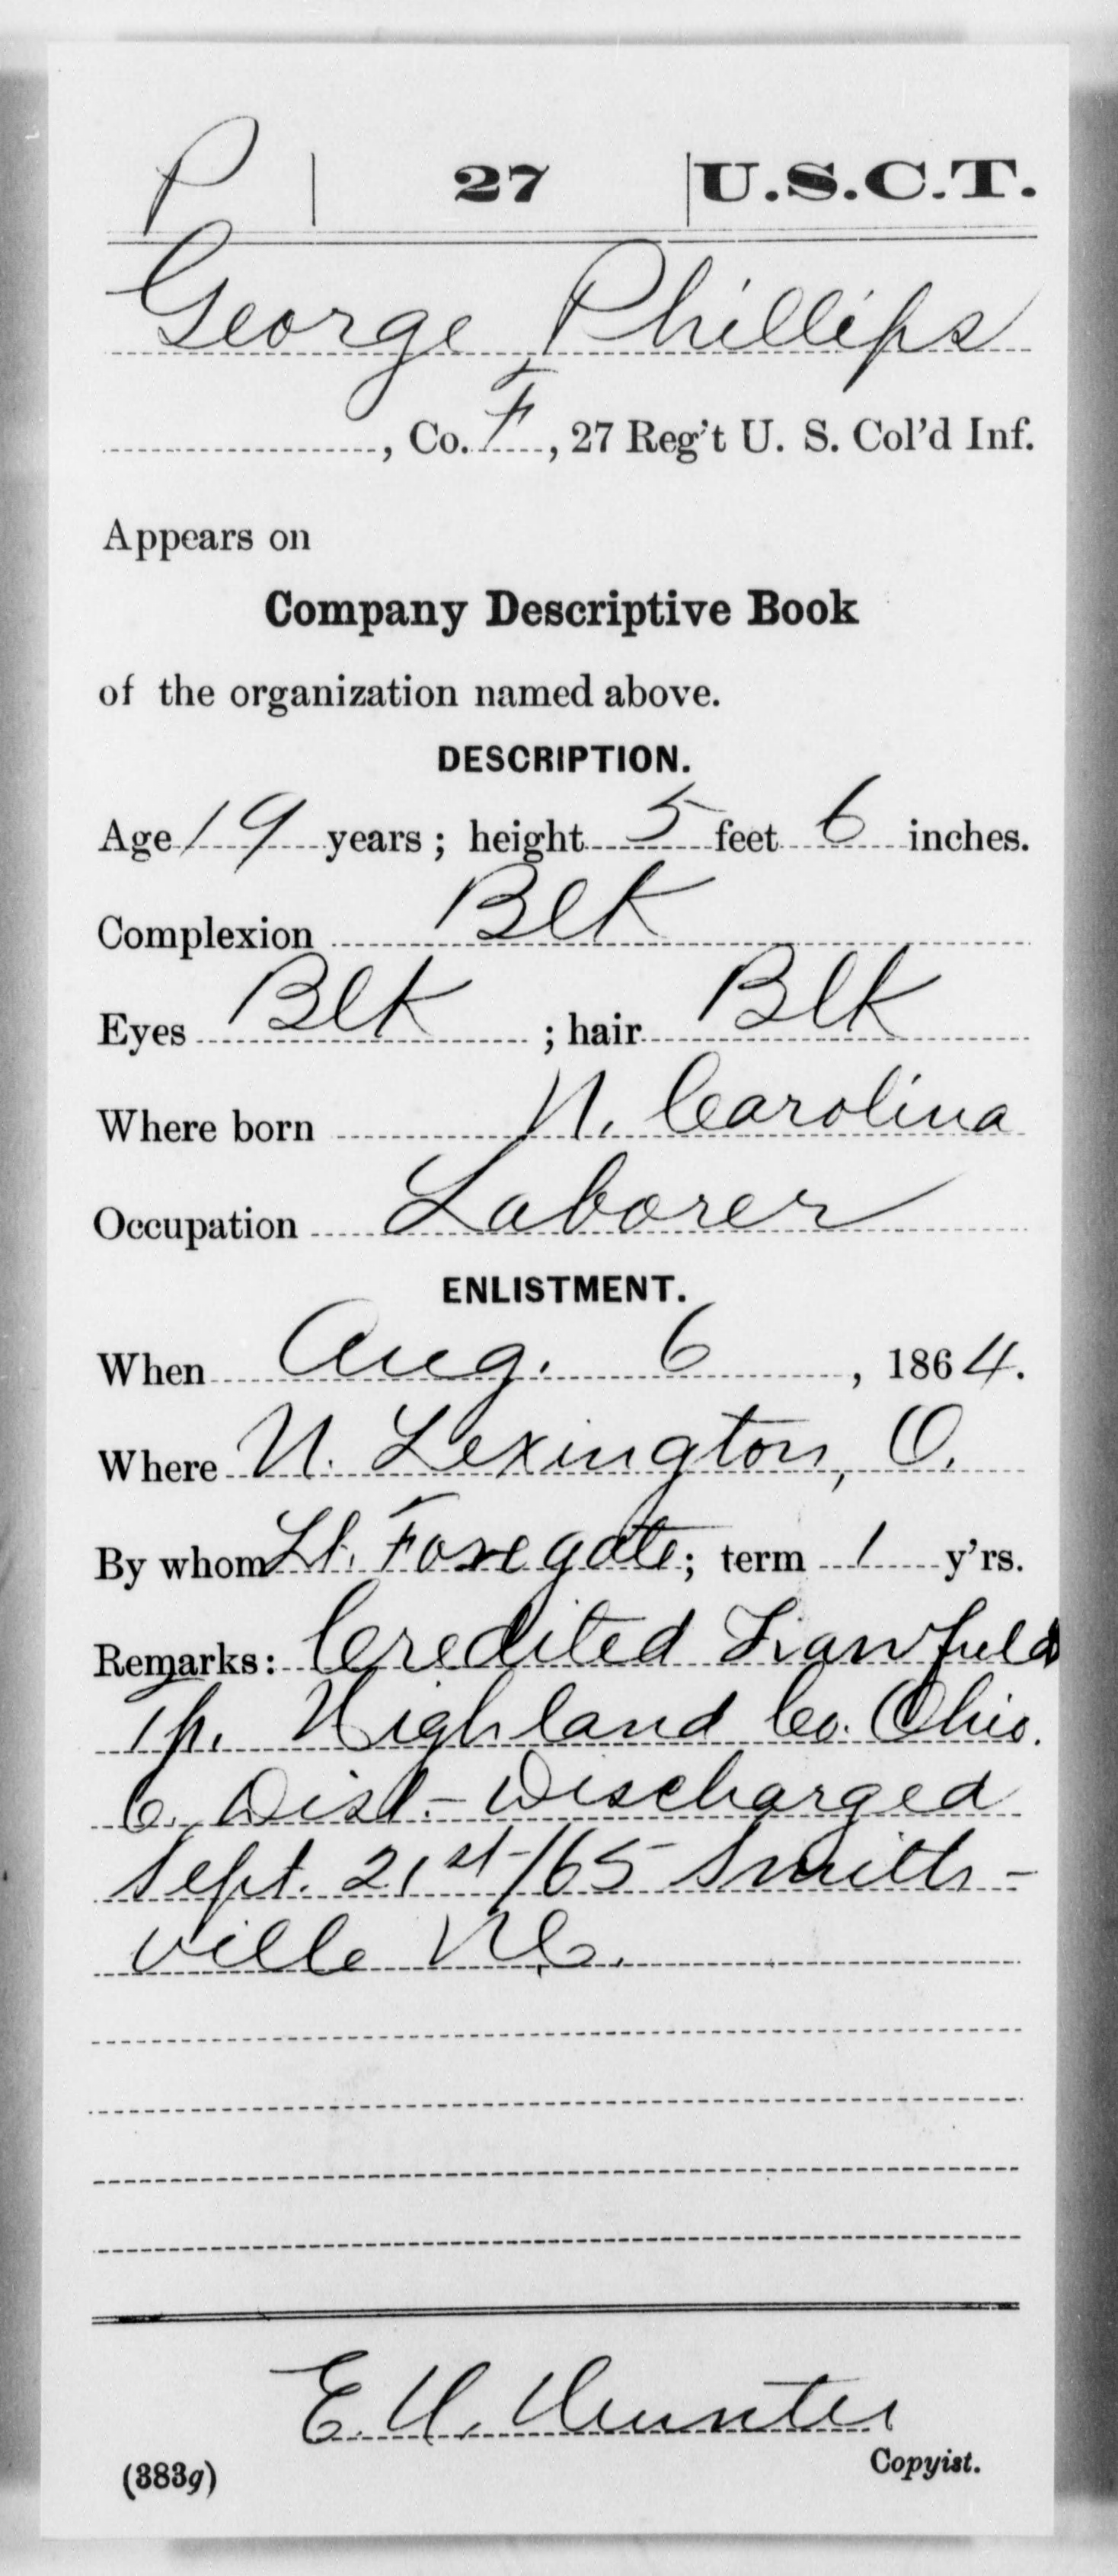 P | 27 | U.S.C.T.
George Phillips
, Co. F, 27 Reg't U. S. Col'd Inf.
Appears on
Company Descriptive Book
of the organization named above.
DESCRIPTION.
Age 19 years; height 5 feet 6 inches.
Complexion Blk
Eyes Blk; hair Blk
Where born N. Carolina
Occupation Laborer
ENLISTMENT.
When Aug. 6, 1864.
Where N. Lexington, O.
By whom Lt. ; term 1 y'rs.
Remarks: Credited
Tp. Highland Co. Ohio.
6. Dist. - Discharged
Sept. 21st/65 Smith-
ville N.C.
E. H. Hunter
Copyist.
(383g)